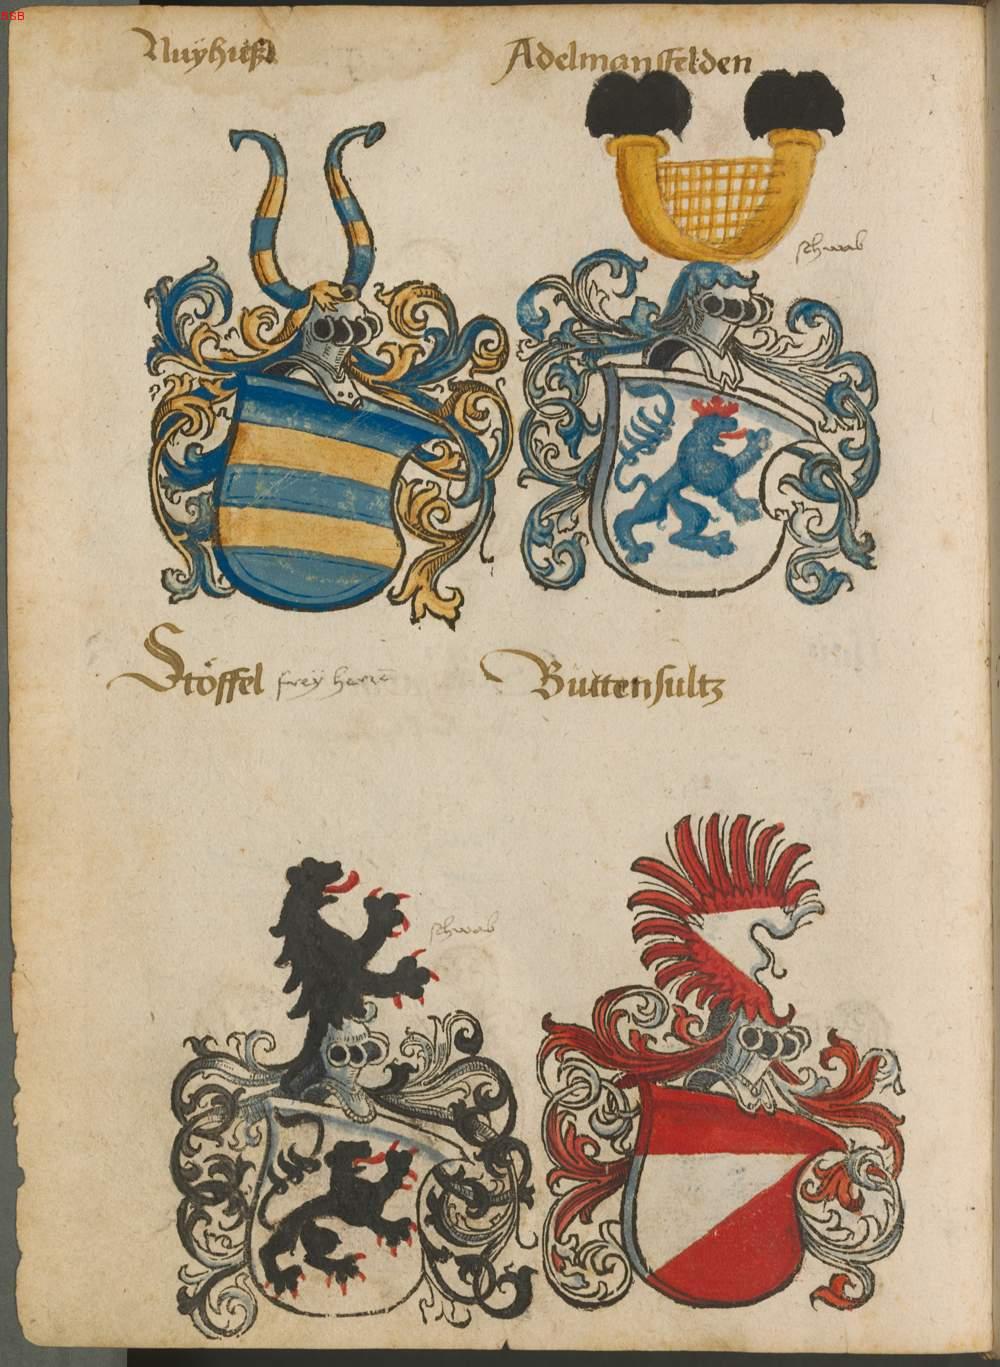 BSB
Nuÿhuß
Adelmansfelden
schwab
Stöffel freÿ herrē
Büttensultz
schwab